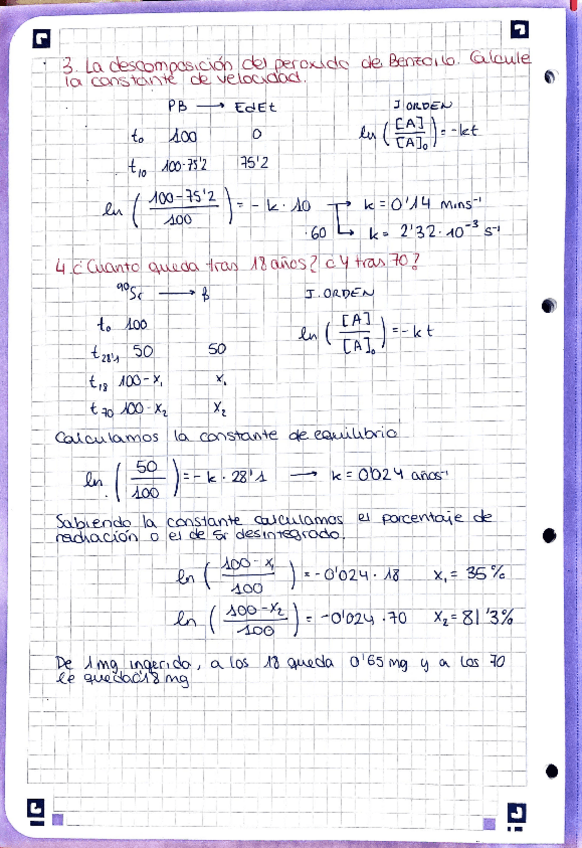 3. La descomposición del peroxido de Benzoilo. Calcule
la constante de velocidad.
PB → EdEt
I ORDEN
t₀ 100 0
ln ([A]/[A]₀) = -kt
t₁₀ 100-75'2 75'2
ln (100-75'2/100) = - k · 10 → k = 0'14 mins⁻¹
·60 → k = 2'32·10⁻³ s⁻¹
4. ¿Cuanto queda tras 18 años? ¿Y tras 70?
⁹⁰Sr → β
I. ORDEN
t₀ 100
ln ([A]/[A]₀) = - k t
t₂₈'₁ 50 50
t₁₈ 100-x₁ x₁
t₇₀ 100-x₂ x₂
Calculamos la constante de equilibrio
ln (50/100) = - k · 28'1 → k = 0'024 años⁻¹
Sabiendo la constante calculamos el porcentaje de
radiación o el de Sr desintegrado.
ln (100-x₁/100) = -0'024 · 18 x₁ = 35%
ln (100-x₂/100) = -0'024 · 70 x₂ = 81'3%
De 1mg ingerido, a los 18 queda 0'65 mg y a los 70
le queda 0'18 mg